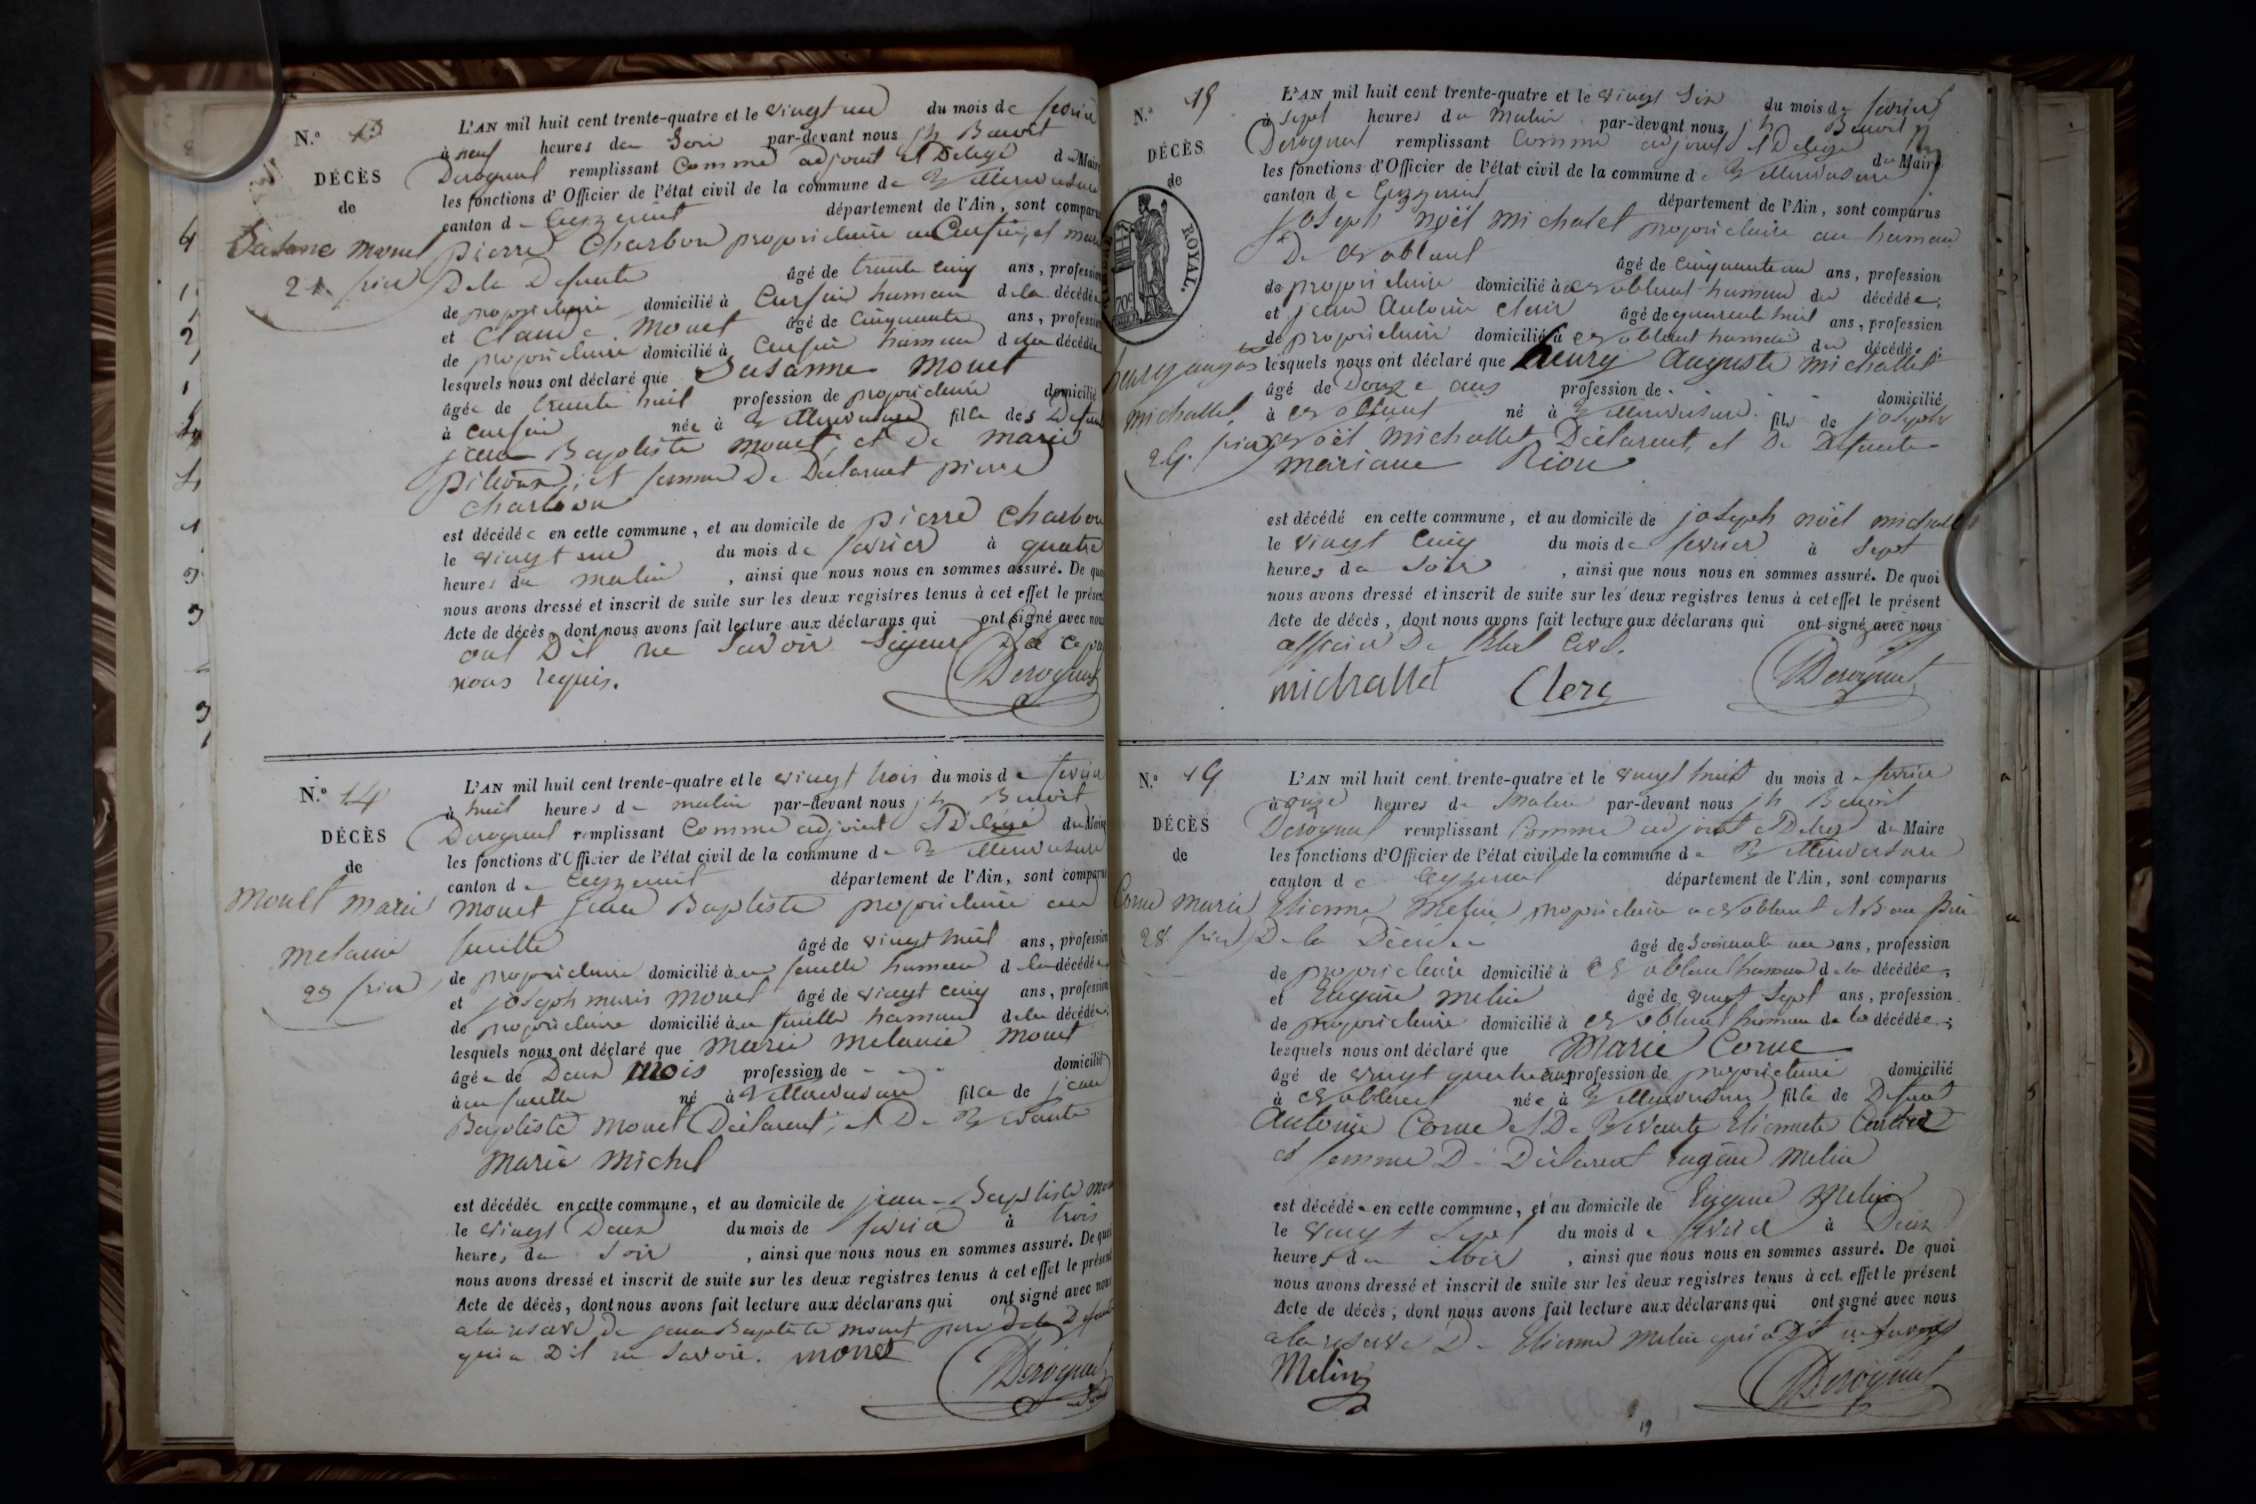 N.º 13
DÉCÈS
de
Susanne Monet
21 frier
L'AN mil huit cent trente-quatre et le vingt un du mois de fevrier
à neuf heures du Soir par-devant nous jh Benoit
Derognat remplissant Comme adjoint et Delegé du Maire
les fonctions d'Officier de l'état civil de la commune de Villereversure
canton de Ceyzeriat département de l'Ain, sont comparus
pierre Charbon propriétaire au Cursin, et mari
De la Defunte âgé de trente cinq ans, profession
de propriétaire domicilié à Cursin hameau de la décédée
et Claude Monet âgé de Cinquante ans, profession
de propriétaire domicilié à Cursin hameau de la décédée
lesquels nous ont déclaré que Susanne Monet
âgée de trente huit profession de propriétaire domicilié
à Cursin née à Villereversure fille des Defunt
jean Baptiste Monet, et De marie
et femme De Déclarant pierre
Charbon
est décédée en cette commune, et au domicile de pierre Charbon
le vingt un du mois de fevrier à quatre
heures du matin, ainsi que nous nous en sommes assuré. De quoi
nous avons dressé et inscrit de suite sur les deux registres tenus à cet effet le présent
Acte de décès, dont nous avons fait lecture aux déclarans qui ont signé avec nous
ont Dit ne Savoir Signer De ce par
nous requis.
Derognat
N.º 14
DÉCÈS
de
Monet marie
melanie
23 frier
L'AN mil huit cent trente-quatre et le vingt trois du mois de fevrier
à huit heures du matin par-devant nous jh Benoit
Derognat remplissant Comme adjoint et Delegé du Maire
les fonctions d'Officier de l'état civil de la commune de Villereversure
canton de Ceyzeriat département de l'Ain, sont comparus
Monet jean Baptiste propriétaire au
âgé de vingt huit ans, profession
de propriétaire domicilié à hameau de la décédée
et joseph marie Monet âgé de vingt cinq ans, profession
de propriétaire domicilié à hameau de la décédée
lesquels nous ont déclaré que marie melanie monet
âgée de Deux mois profession de domicilié
à né à Villereversure fille de jean
Baptiste Monet Déclarant, et De Vivante
marie michel
est décédée en cette commune, et au domicile de jean Baptiste Monet
le vingt Deux du mois de fevrier à trois
heures du Soir, ainsi que nous nous en sommes assuré. De quoi
nous avons dressé et inscrit de suite sur les deux registres tenus à cet effet le présent
Acte de décès, dont nous avons fait lecture aux déclarans qui ont signé avec nous
a la reserve de jean Baptiste monet pere De la Defunte
qui a Dit ne Savoir. monet
Derognat
N.º 15
DÉCÈS
de
ROYAL.
henry auguste
michallet
L'AN mil huit cent trente-quatre et le vingt Six du mois de fevrier
à sept heures du matin par-devant nous jh Benoit
Derognat remplissant Comme adjoint et Delegé du Maire
les fonctions d'Officier de l'état civil de la commune de Villereversure
canton de Ceyzeriat département de l'Ain, sont comparus
joseph noël michalet propriétaire au hameau
De Noblant âgé de cinquante un ans, profession
de propriétaire domicilié à Noblant hameau du décédé;
et jean Antoine Clerc âgé de quarante huit ans, profession
de propriétaire domicilié à Noblant hameau du décédé;
lesquels nous ont déclaré que henry Auguste michallet
âgé de Douze ans profession de domicilié
à Noblant né à Villereversure fils de joseph
Noël michallet Déclarent, et De Defunte
mariane Riou
est décédé en cette commune, et au domicile de joseph noël michallet
le vingt cinq du mois de fevrier à Sept
heures du Soir, ainsi que nous nous en sommes assuré. De quoi
nous avons dressé et inscrit de suite sur les deux registres tenus à cet effet le présent
Acte de décès, dont nous avons fait lecture aux déclarans qui ont signé avec nous
officier De l'Etat Civil.
michallet Clerc Derognat
N.º 16
DÉCÈS
de
Corne Marie
28 frier
L'AN mil huit cent trente-quatre et le vingt huit du mois de fevrier
à onze heures du Matin par-devant nous jh Benoit
Derognat remplissant Comme adjoint et Delegé du Maire
les fonctions d'Officier de l'état civil de la commune de Villereversure
canton de Ceyzeriat département de l'Ain, sont comparus
Etienne Melin propriétaire a Noblant et Beau pere
De la Décédée âgé de Soixante un ans, profession
de propriétaire domicilié à Noblant hameau de la décédée;
et Eugène melin âgé de vingt Sept ans, profession
de propriétaire domicilié à Noblant hameau de la décédée;
lesquels nous ont déclaré que Marie Corne
âgé de vingt quatre ans profession de propriétaire domicilié
à Noblant née à Villereversure fille de Defunt
Antoine Corne et De Vivante Etiennete
et femme De Déclarent Eugène Melin
est décédée en cette commune, et au domicile de Eugene Melin
le vingt Sept du mois de fevrier à Deux
heures du Soir, ainsi que nous nous en sommes assuré. De quoi
nous avons dressé et inscrit de suite sur les deux registres tenus à cet effet le présent
Acte de décès, dont nous avons fait lecture aux déclarans qui ont signé avec nous
a la reserve De Etienne Melin qui a Dit ne Savoir
Melin Derognat
19